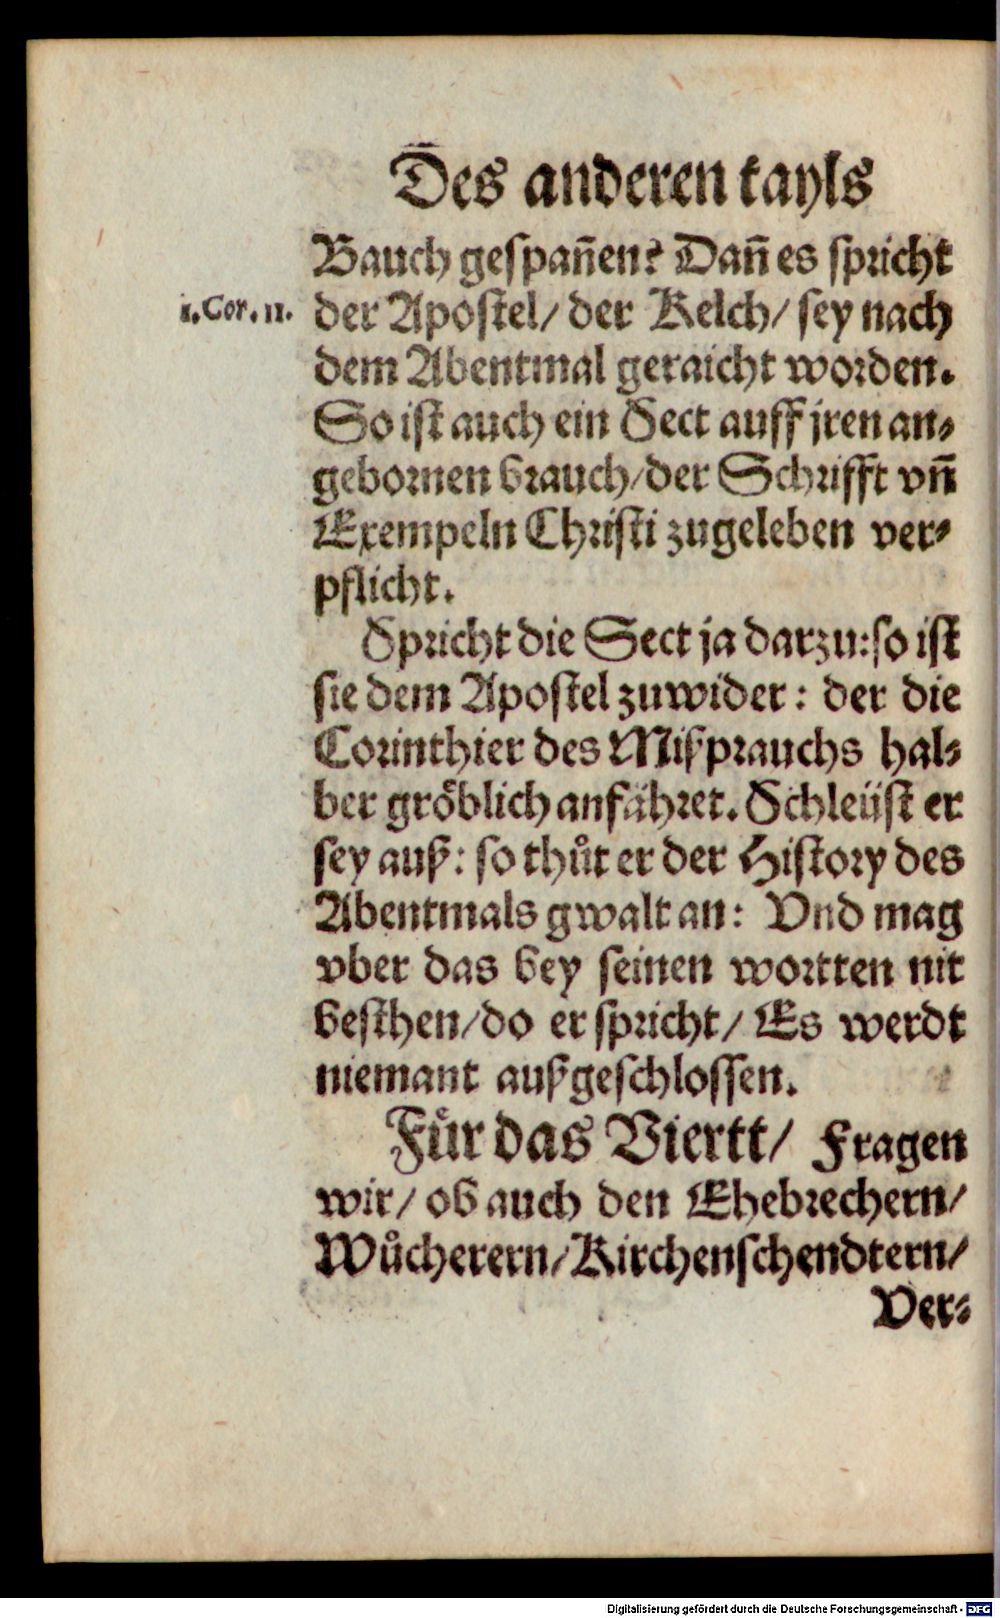 Des anderen tayls
Bauch gespañen? Dañ es spricht
1. Cor. 11.
der Apostel/ der Kelch/ sey nach
dem Abentmal geraicht worden.
So ist auch ein Sect auff jren an-
gebornen brauch/ der Schrifft vñ
Exempeln Christi zugeleben ver-
pflicht.
Spricht die Sect ja darzu: so ist
sie dem Apostel zuwider: der die
Corinthier des Mißprauchs hal-
ber gröblich anfähret. Schleüst er
sey auß: so thůt er der History des
Abentmals gwalt an: Vnd mag
vber das bey seinen wortten nit
besthen/ do er spricht/ Es werdt
niemant außgeschlossen.
Fůr das Viertt/ Fragen
wir/ ob auch den Ehebrechern/
Wůcherern/ Kirchenschendtern/
Ver-
Digitalisierung gefördert durch die Deutsche Forschungsgemeinschaft - DFG